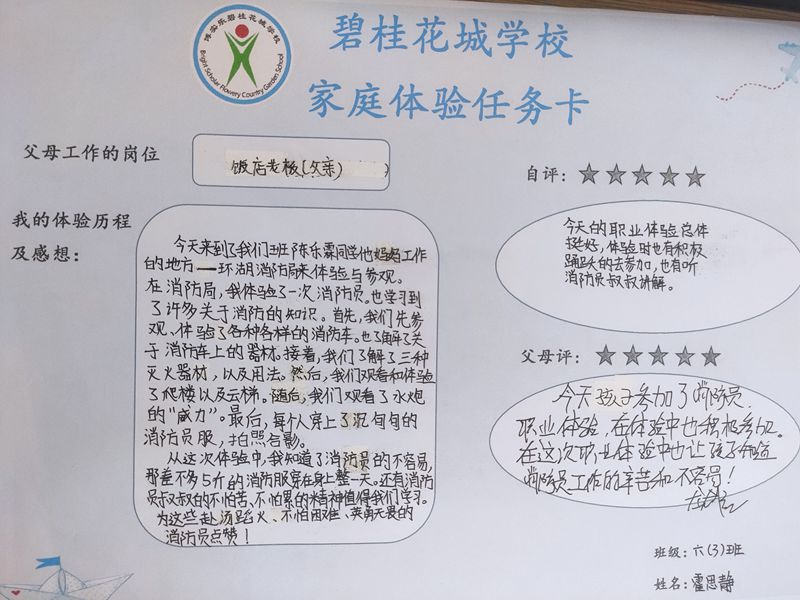 博实乐碧桂花城学校
Bright Scholar Flowery Country Garden School
碧桂花城学校
家庭体验任务卡
父母工作的岗位
饭店老板(父亲)
我的体验历程
及感想：
今天来到了我们班陈乐霖同学他妈妈工作
的地方——环湖消防局来体验与参观。
在消防局，我体验了一次消防员。也学习到
了许多关于消防的知识。首先，我们先参
观、体验了各种各样的消防车。也了解了关
于消防车上的器材。接着，我们了解了三种
灭火器材，以及用法。然后，我们观看和体验
了爬楼以及云梯。随后，我们观看了水炮
的“威力”。最后，每个人穿上了沉甸甸的
消防员服，拍照合影。
从这次体验中，我知道了消防员的不容易，
那差不多5斤的消防服穿在身上整一天。还有消防
员叔叔的不怕苦、不怕累的精神值得我们学习。
为这些赴汤蹈火、不怕困难、英勇无畏的
消防员点赞！
自评：☆☆☆☆☆
今天的职业体验总体
挺好，体验时也有积极
踊跃的去参加，也有听
消防员叔叔讲解。
父母评：☆☆☆☆☆
今天孩子参加了消防员
职业体验，在体验中也积极参加。
在这次职业体验中也让孩子知道
消防员工作的辛苦和不容易！
班级：六(3)班
姓名：霍思静